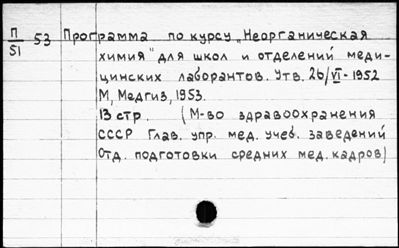 П/51 53 Программа по курсу „Неорганическая
химия" для школ и отделений меди-
цинских лаборантов. Утв. 26/VI-1952
М, Медгиз, 1953.
13 стр. (М-во здравоохранения
СССР Глав. упр. мед. учеб. заведений
Отд. подготовки средних мед. кадров)